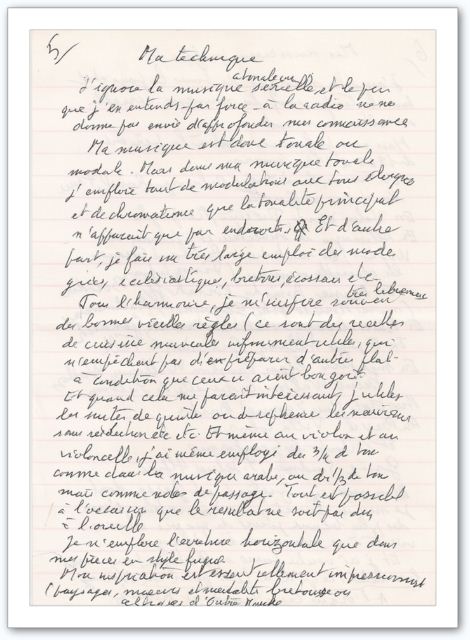 5/
Ma technique
atonale ou
J'ignore la musique serielle et le peu
que j'en entends - par force - à la radio ne me
donne pas envie d'approfondir mes connaissances
Ma musique est donc tonale ou
modale. Mais dans ma musique tonale
j'emploie tant de modulations aux tons éloignés
et de chromatisme que la tonalité principale
n'apparait que par endroits. Et d'autre
part, je fais un très large emploi des modes
grecs, ecclésiastiques, bretons, écossais etc
très librement
Pour l'harmonie, je m'inspire souvent
des bonnes vieilles règles (ce sont des recettes
de cuisine musicales infiniment utiles, qui
n'empêchent pas d'en préparer d'autres plats
à condition que ceux ci aient bon goût.
Et quand cela me parait intéressant, j'utilise
les suites de quinte ou de septieme les
sans etc etc Et même au violon et au
violoncelle, j'ai même employé des 3/4 de ton
comme dans la musique arabe, ou de 1/3 de ton
mais comme notes de passage. Tout est possible
à l'occasion que le resultat ne soit pas dur
à l'oreille
Je n'emploie l'écriture horizontale que dans
mes pièces en style fugué
Mon inspiration est essentiellement impressionniste
(paysages, moeurs et mentalité bretonne ou
d'Outre Manche